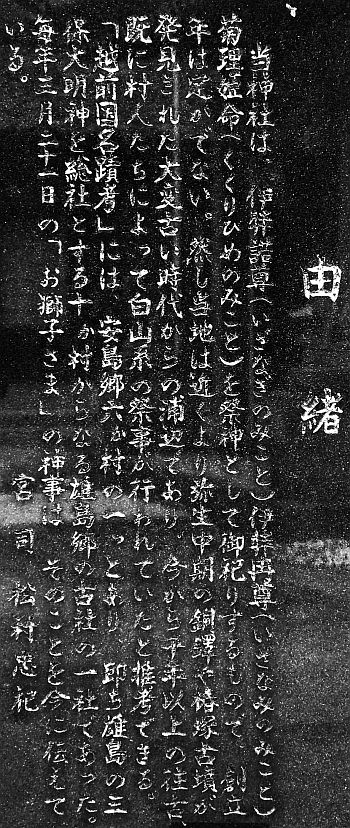 由緒
当神社は、伊弉諾尊(いざなぎのみこと)伊弉冉尊(いざなみのみこと)
菊理媛命(くくりひめのみこと)を祭神として御祀りするもので、創立
年は定かでない。然し当地は近くより弥生中期の銅鐸や椿塚古墳が
発見された大変古い時代からの浦辺であり、今から千年以上の往古、
既に村人たちによって白山系の祭事が行われていたと推考できる。
「越前国名蹟考」には、安島郷六か村の一っとあり、即ち雄島の三
保大明神を総社とする十か村からなる雄島郷の古社の一社であった。
毎年三月二十一日の「お獅子さま」の神事は、そのことを今に伝えて
いる。
宮司 松村忠祀